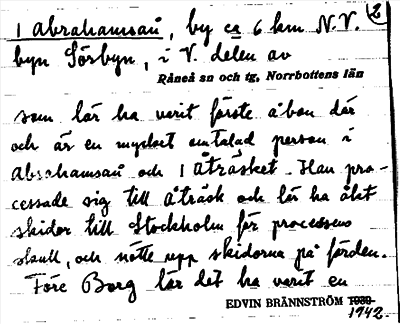 1 Abrahamsån, by ca 6 km N.V. 2
byn Sörbyn, i V. delen av
Råneå sn och tg, Norrbottens län
som lär ha varit förste åbon där
och är en mycket omtalad person i
Abrahamsån och 1 Åträsket. Han pro-
cessade sig till Åträsk och lär ha åkt
skidor till Stockholm för processens
skull, och nötte upp skidorna på färden.
Före Borg lär det ha varit en
EDVIN BRÄNNSTRÖM 1939
1942.